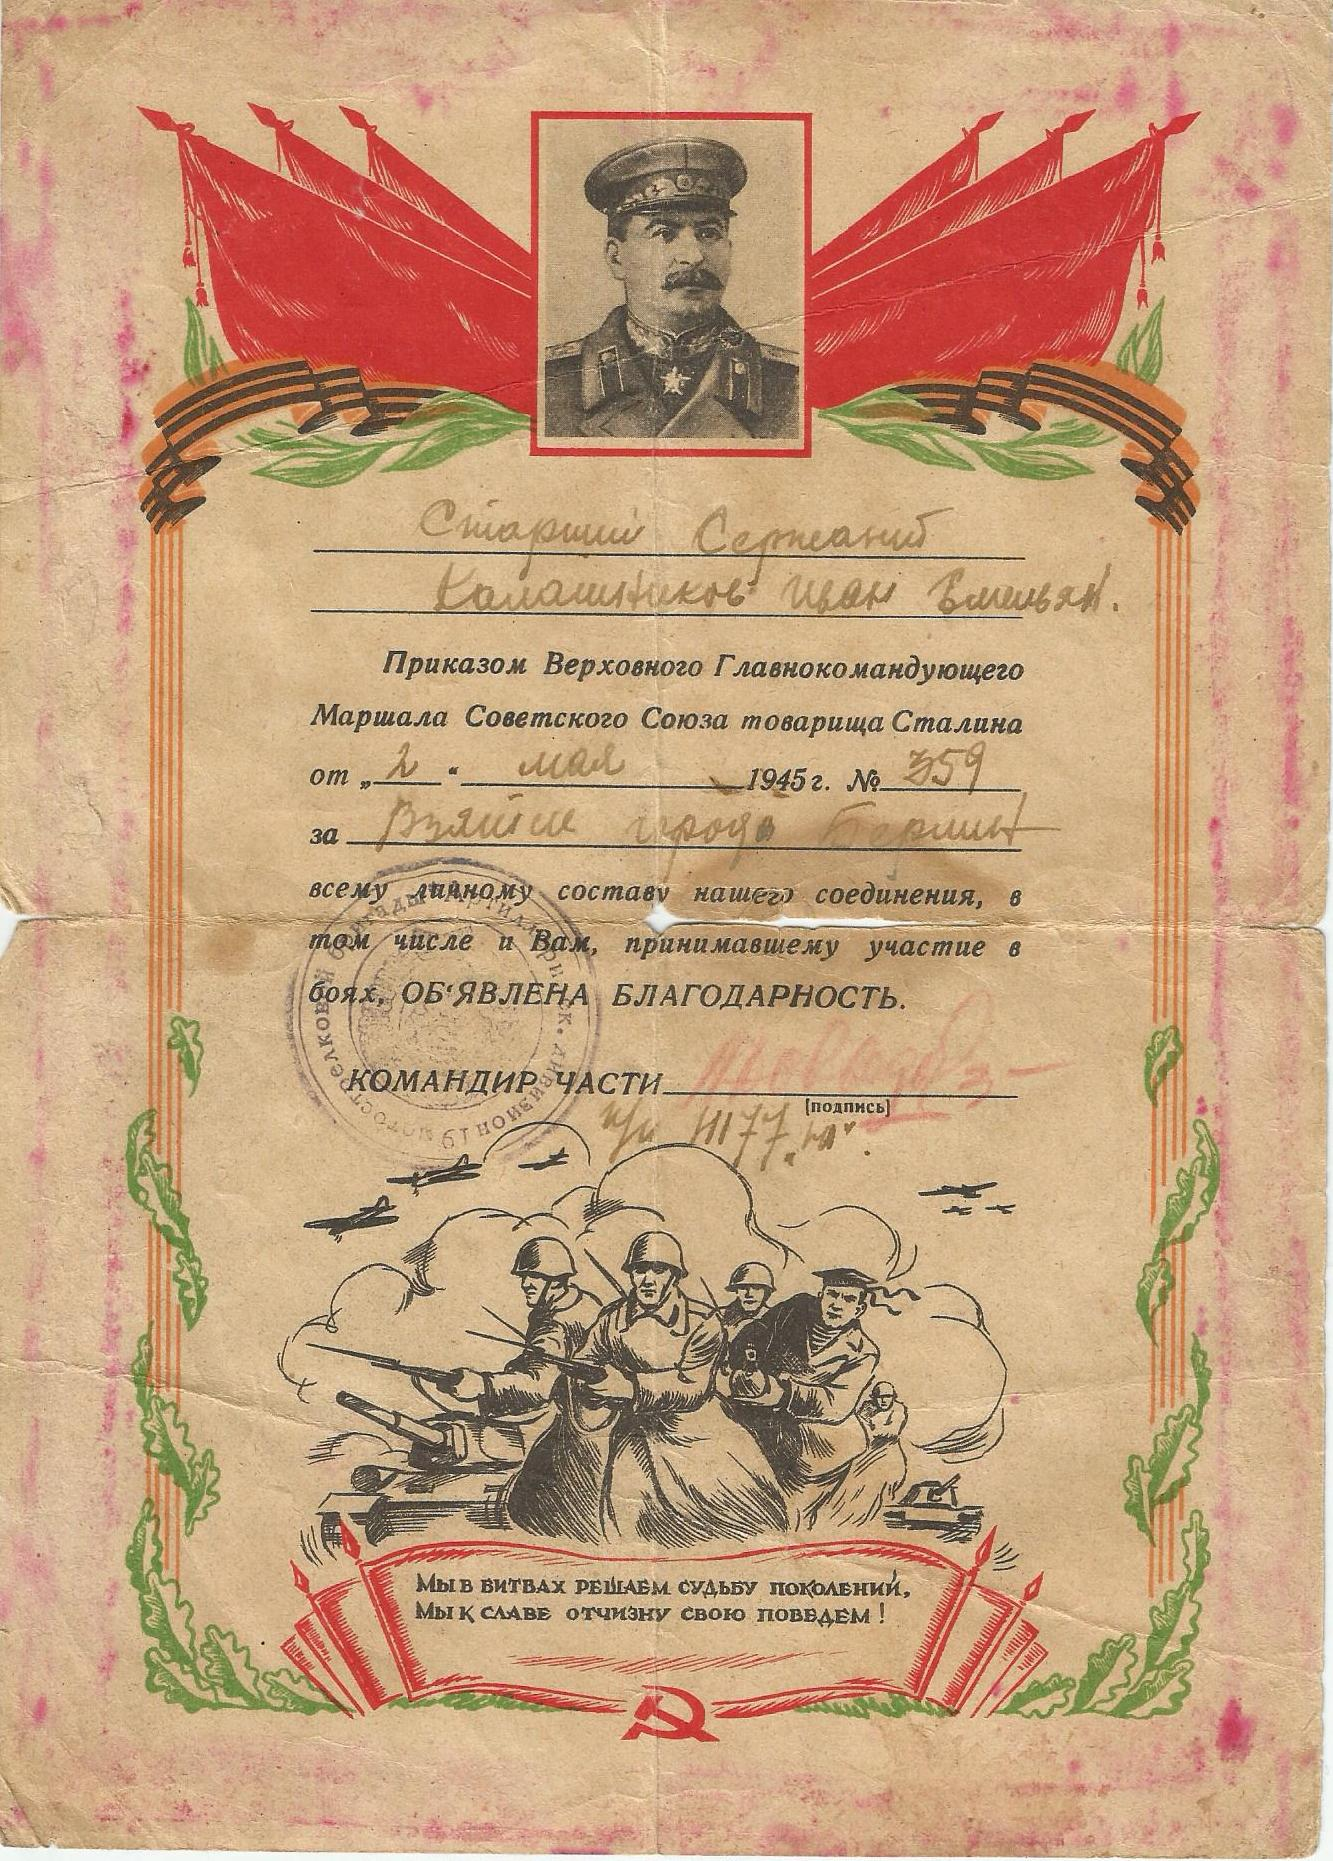 Старший Сержант
Калашников Иван Емельян.
Приказом Верховного Главнокомандующего
Маршала Советского Союза товарища Сталина
от „2“ мая 1945 г. № 359
за Взятие города Берлин
всему личному составу нашего соединения, в
том числе и Вам, принимавшему участие в
боях, ОБ‘ЯВЛЕНА БЛАГОДАРНОСТЬ.
КОМАНДИР ЧАСТИ
[подпись]
мотострелковой бригады артиллерийск. дивизион 19
МЫ В БИТВАХ РЕШАЕМ СУДЬБУ ПОКОЛЕНИЙ,
МЫ К СЛАВЕ ОТЧИЗНУ СВОЮ ПОВЕДЕМ!